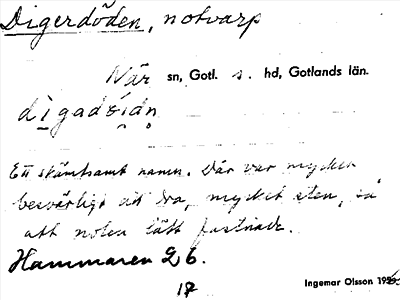 Digerdöden, notvarp
När sn, Gotl. s. hd, Gotlands län.
Ett skämtsamt namn. Där var mycket
besvärligt att dra, mycket sten, så
att noten lätt fastnade.
Hammaren 26.
17
Ingemar Olsson